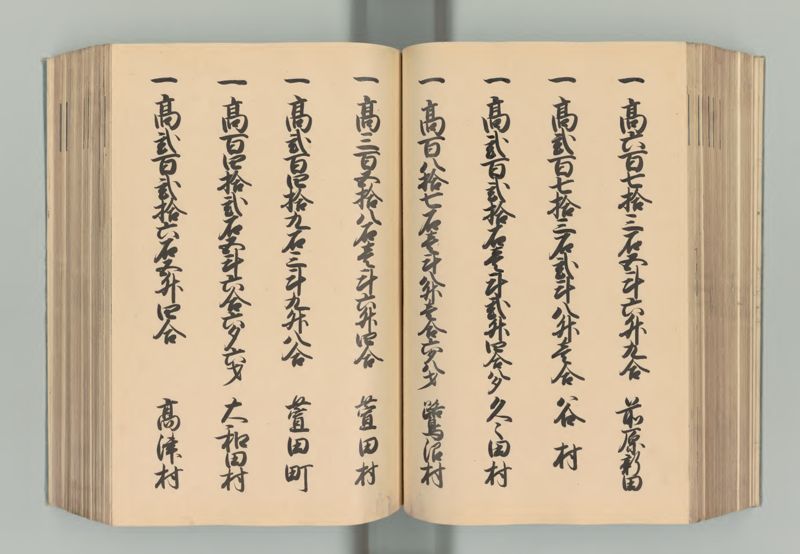 一 高六百七拾三石五斗六升九合 前原新田
一 高弐百七拾三石弐斗八升壱合 谷村
一 高弐百弐拾石壱斗弐升四合八夕 久々田村
一 高百八拾七石壱斗八升壱合六夕八才 鷺沼村
一 高三百五拾八石壱斗六升四合 萱田村
一 高弐百四拾九石三斗九升八合 萱田町
一 高百四拾弐石五斗六合六夕六才 大和田村
一 高弐百弐拾六石五升四合 高津村